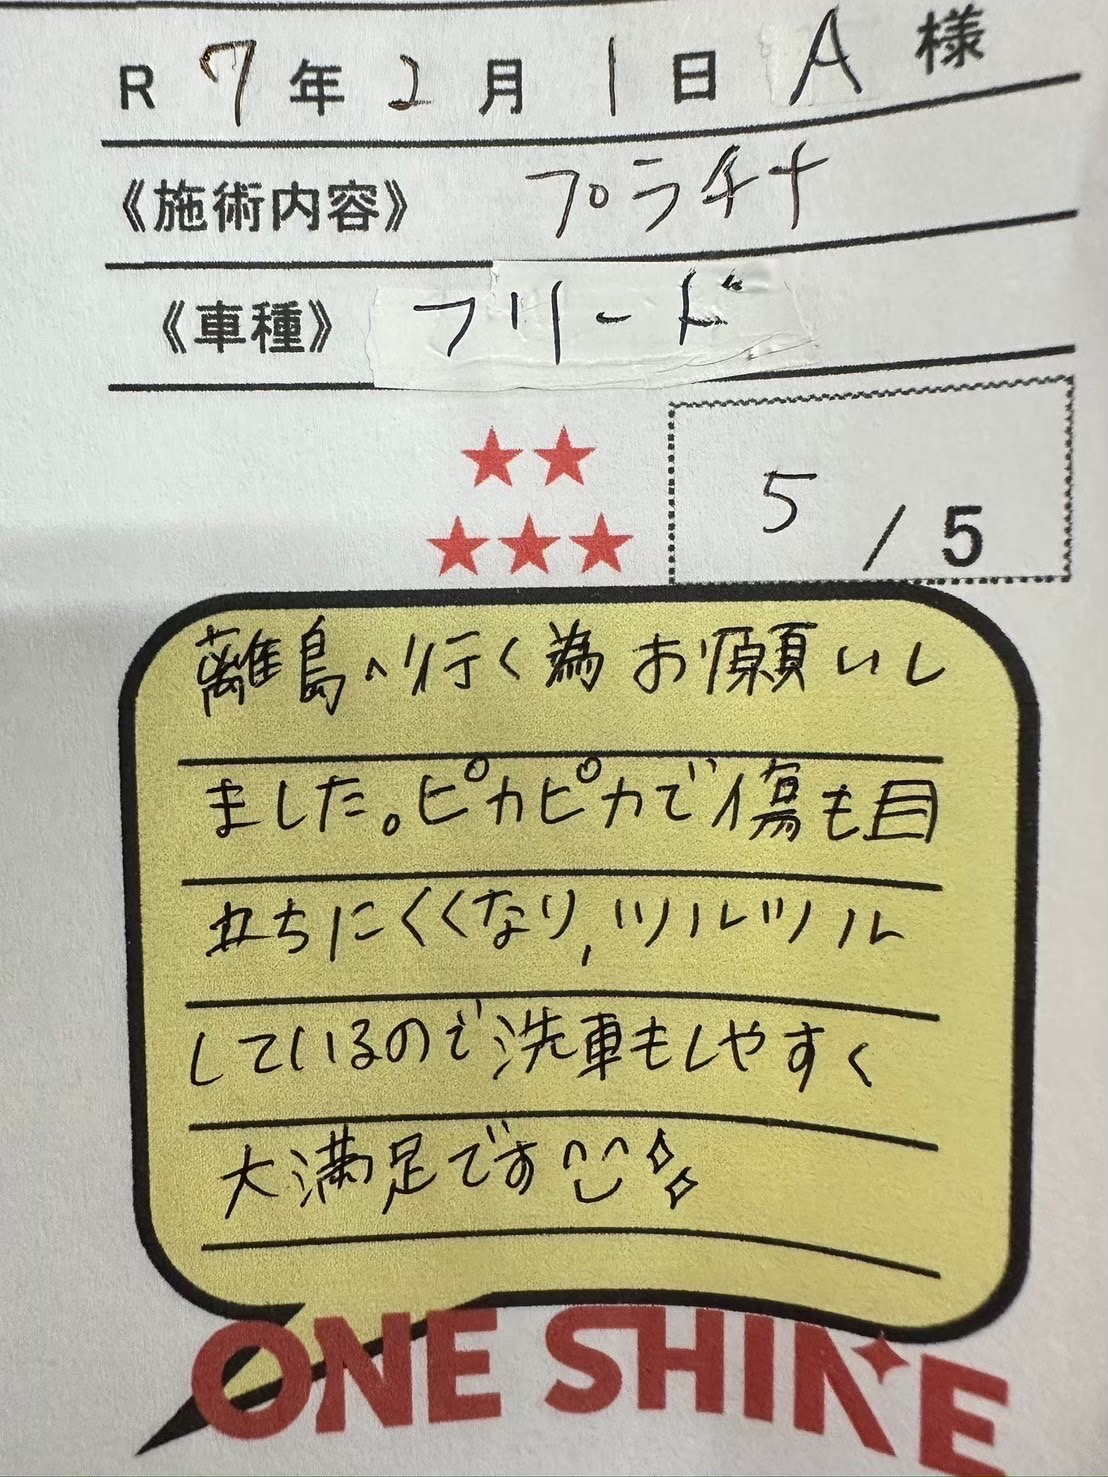 R 7年2月1日 A様
《施術内容》 プラチナ
《車種》 フリード
5 / 5
離島へ行く為お願いし
ました。ピカピカで傷も目
立ちにくくなり,ツルツル
しているので洗車もしやすく
大満足です
ONE SHINE